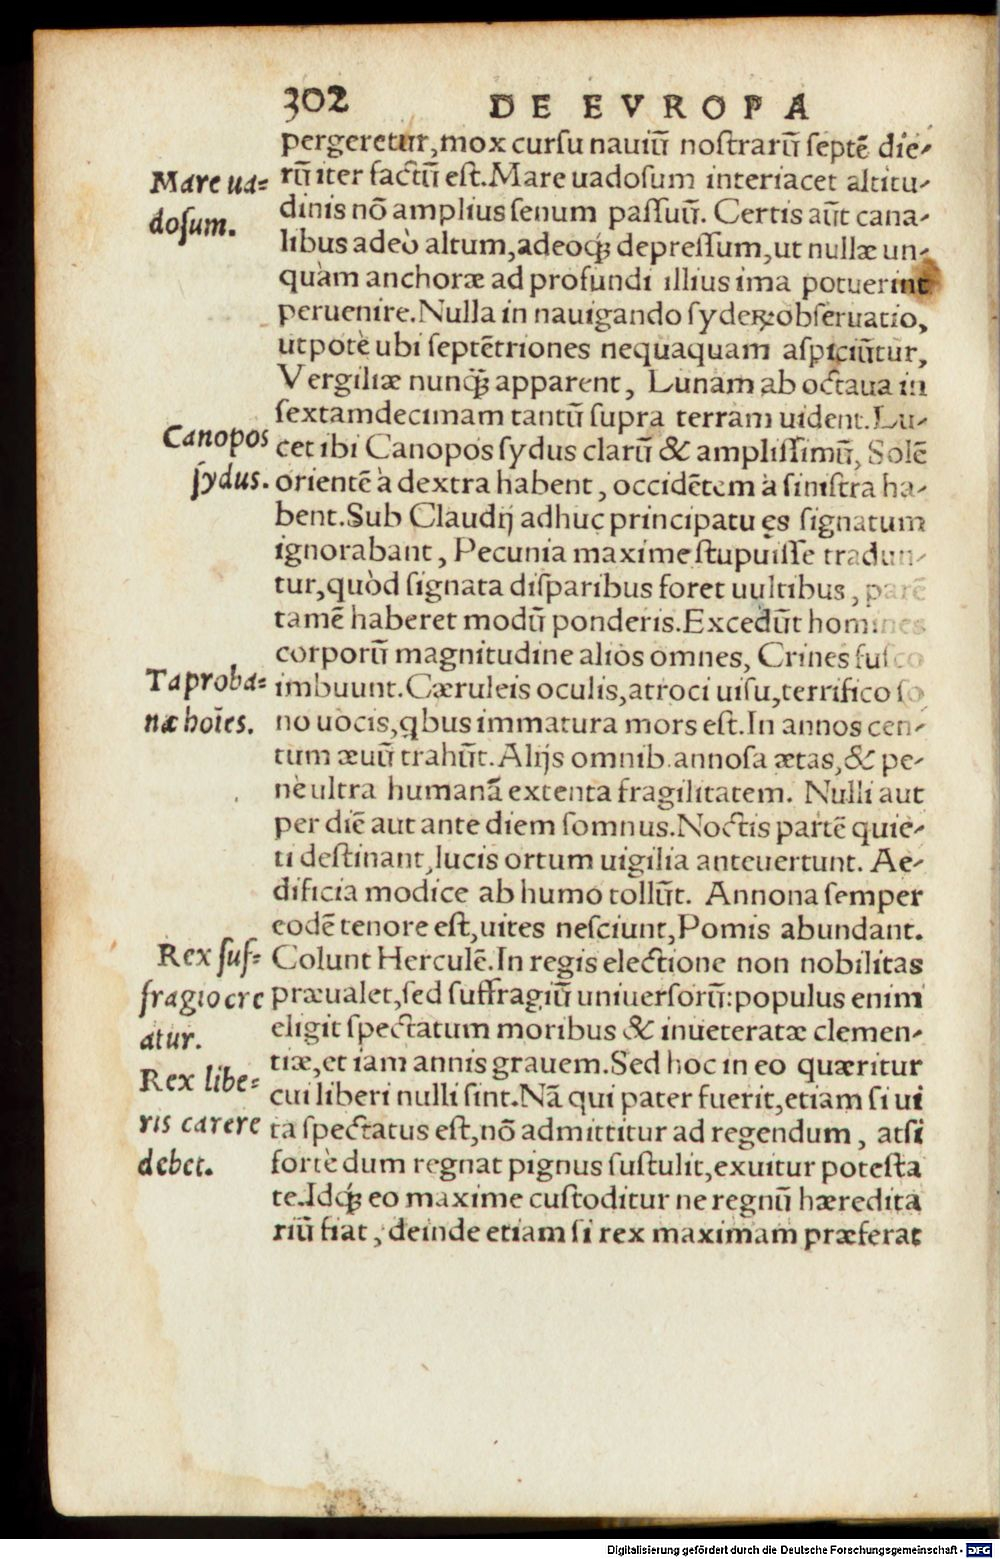 302 DE EVROPA
pergeretur, mox cursu nauiũ nostrarũ septẽ die-
Mare ua=
rũ iter factũ est. Mare uadosum interiacet altitu-
dosum.
dinis nõ amplius senum passuũ. Certis aũt cana-
libus adeò altum, adeoq́; depressum, ut nullæ un-
quàm anchoræ ad profundi illius ima potuerint
peruenire. Nulla in nauigando syderꝝ obseruatio,
utpotè ubi septẽtriones nequaquam aspiciũtur,
Vergiliæ nunq̃; apparent, Lunam ab octaua in
sextamdecimam tantũ supra terram uident. Lu-
Canopos
cet ibi Canopos sydus clarũ & amplissimũ, Solẽ
sydus.
orientẽ à dextra habent, occidẽtem à sinistra ha-
bent. Sub Claudij adhuc principatu ęs signatum
ignorabant, Pecunia maxime stupuisse tradun-
tur, quòd signata disparibus foret uultibus, parẽ
tamẽ haberet modũ ponderis. Excedũt homines
corporũ magnitudine alios omnes, Crines fusco
Taproba=
imbuunt. Cæruleis oculis, atroci uisu, terrifico so
næ hoĩes.
no uocis, qbus immatura mors est. In annos cen-
tum æuũ trahũt. Alijs omnib. annosa ætas, & pe-
nè ultra humanã extenta fragilitatem. Nulli aut
per diẽ aut ante diem somnus. Noctis partẽ quie-
ti destinant, lucis ortum uigilia anteuertunt. Ae-
dificia modice ab humo tollũt. Annona semper
eodẽ tenore est, uites nesciunt, Pomis abundant.
Rex suf=
Colunt Herculẽ. In regis electione non nobilitas
fragio cre
præualet, sed suffragiũ uniuersorũ: populus enim
atur.
eligit spectatum moribus & inueteratæ clemen-
tiæ, et iam annis grauem. Sed hoc in eo quæritur
Rex libe=
cui liberi nulli sint. Nã qui pater fuerit, etiam si ui
ris carere
ta spectatus est, nõ admittitur ad regendum, atsi
debet.
fortè dum regnat pignus sustulit, exuitur potesta
te. Idq́; eo maxime custoditur ne regnũ hæredita
riũ fiat, deinde etiam si rex maximam præferat
Digitalisierung gefördert durch die Deutsche Forschungsgemeinschaft - DFG